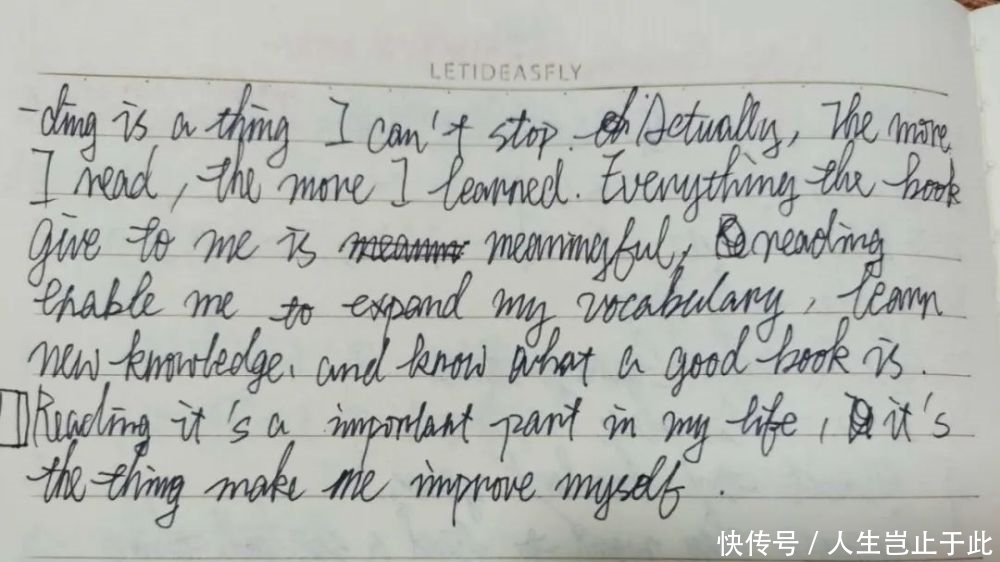 LETIDEASFLY
-ding is a thing I can't stop. Actually, The more
I read, the more I learned. Everything the book
give to me is meaningful, reading
enable me to expand my vocabulary, learn
new knowledge. and know what a good book is.
Reading it's a important part in my life, it's
the thing make me improve myself.
快传号 / 人生岂止于此